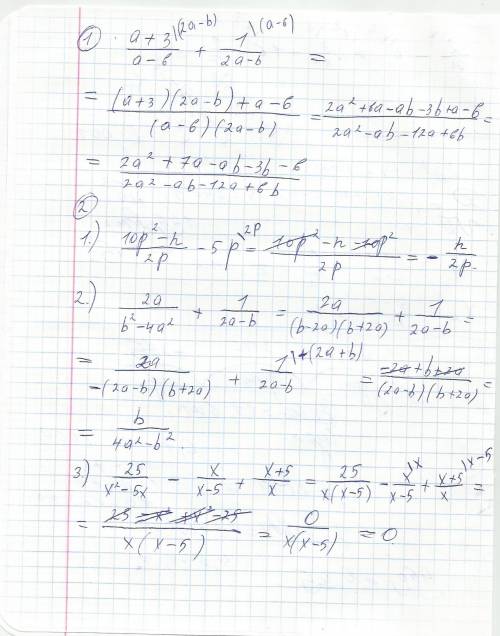 ① (a+3)/(a-6) \(2a-b) + 1/(2a-b) \(a-6) =
= ((a+3)(2a-b)+a-6)/((a-6)(2a-b)) = (2a²+6a-ab-3b+a-6)/(2a²-ab-12a+6b) =
= (2a²+7a-ab-3b-6)/(2a²-ab-12a+6b)
②
1.) (10p²-n)/2p - 5p \2p = (10p²-n-10p²)/2p = - n/2p.
2.) 2a/(b²-4a²) + 1/(2a-b) = 2a/((b-2a)(b+2a)) + 1/(2a-b) =
= 2a/(-(2a-b)(b+2a)) + 1/(2a-b) \+(2a+b) = (-2a+b+2a)/((2a-b)(b+2a)) =
= b/(4a²-b²).
3.) 25/(x²-5x) - x/(x-5) + (x+5)/x = 25/(x(x-5)) - x/(x-5) \x + (x+5)/x \x-5 =
= (25-x²+x²-25)/(x(x-5)) = 0/(x(x-5)) = 0.